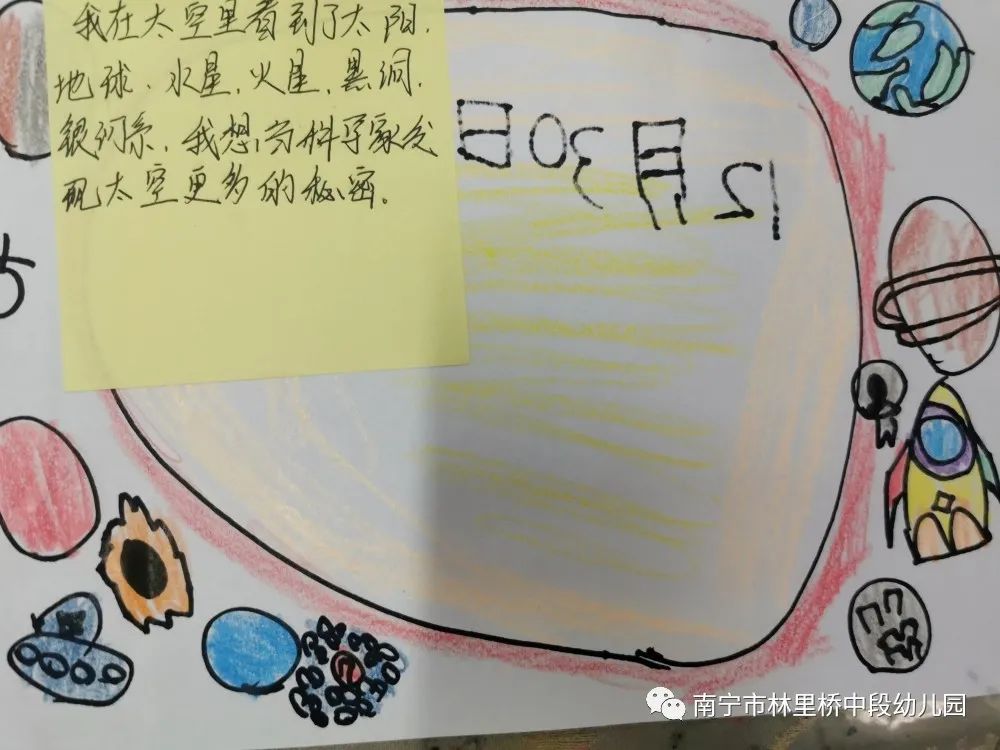 我在太空里看到了太阳、
地球、水星、火星、黑洞、
银河系，我想当科学家发
现太空更多的秘密。
12月30日
南宁市林里桥中段幼儿园